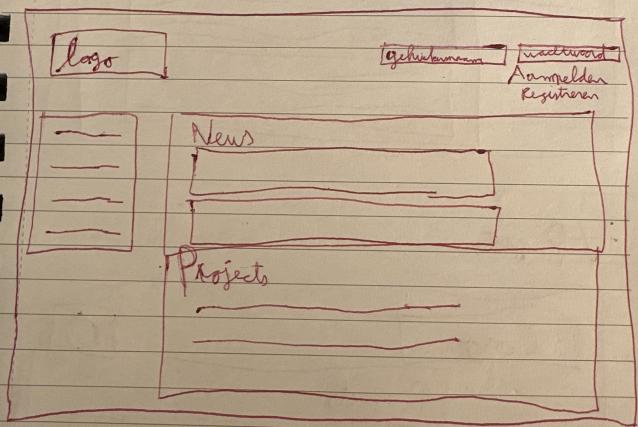 logo
gebruikersnaam
wachtwoord
Aanmelden
Registreren
News
Projects